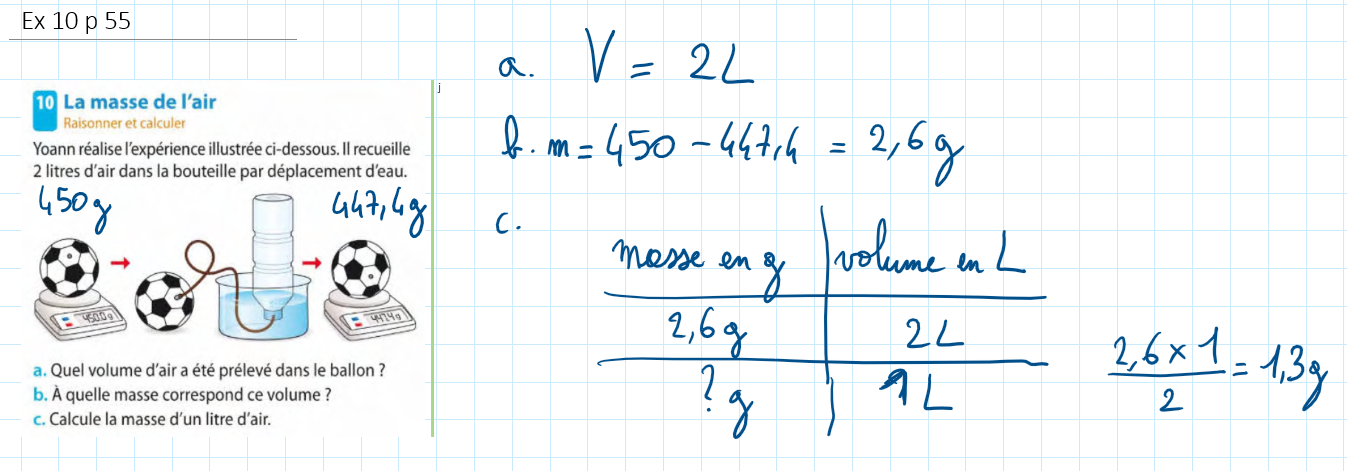 Ex 10 p 55
j
10 La masse de l'air
Raisonner et calculer
Yoann réalise l'expérience illustrée ci-dessous. Il recueille
2 litres d'air dans la bouteille par déplacement d'eau.
450g
447,4g
450.0g
447.4g
a. Quel volume d'air a été prélevé dans le ballon ?
b. À quelle masse correspond ce volume ?
c. Calcule la masse d'un litre d'air.
a. V = 2L
b. m = 450 - 447,4 = 2,6g
c.
masse en g | volume en L
2,6g | 2L
? g | 1L
2,6 × 1 / 2 = 1,3g